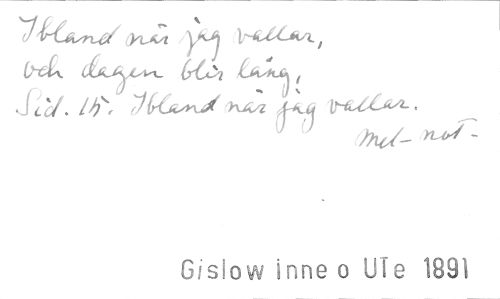 Ibland när jag vallar,
och dagen blir lång,
Sid. 15. Ibland när jag vallar.
Mel- not-
Gislow inne o UTe 1891